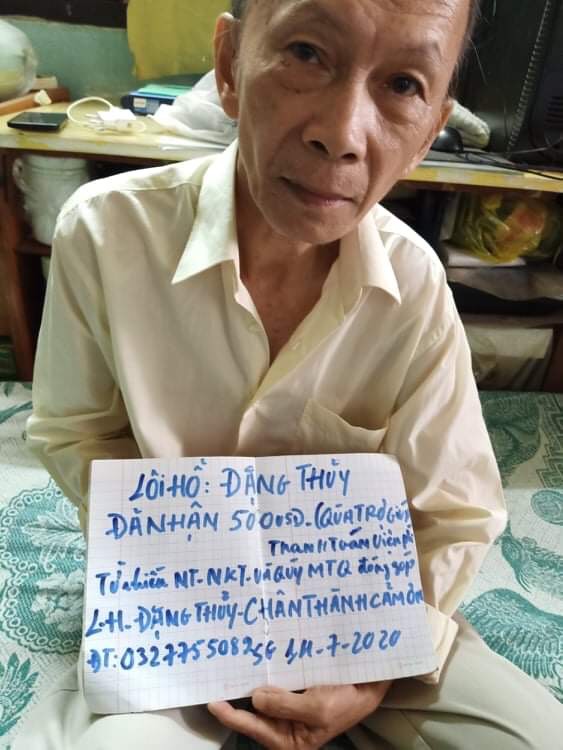 LÔI HỔ: ĐẶNG THỦY
ĐÃ NHẬN 500 USD. (QÙA TRỢ GIÚP)
Thanh Tuấn Viên
Từ chiến NT-NKT. Và QUÝ MTQ đóng góp
L.H. ĐẶNG THỦY-CHÂN THÀNH CẢM ƠN
ĐT: 0327755082 SG -7-2020